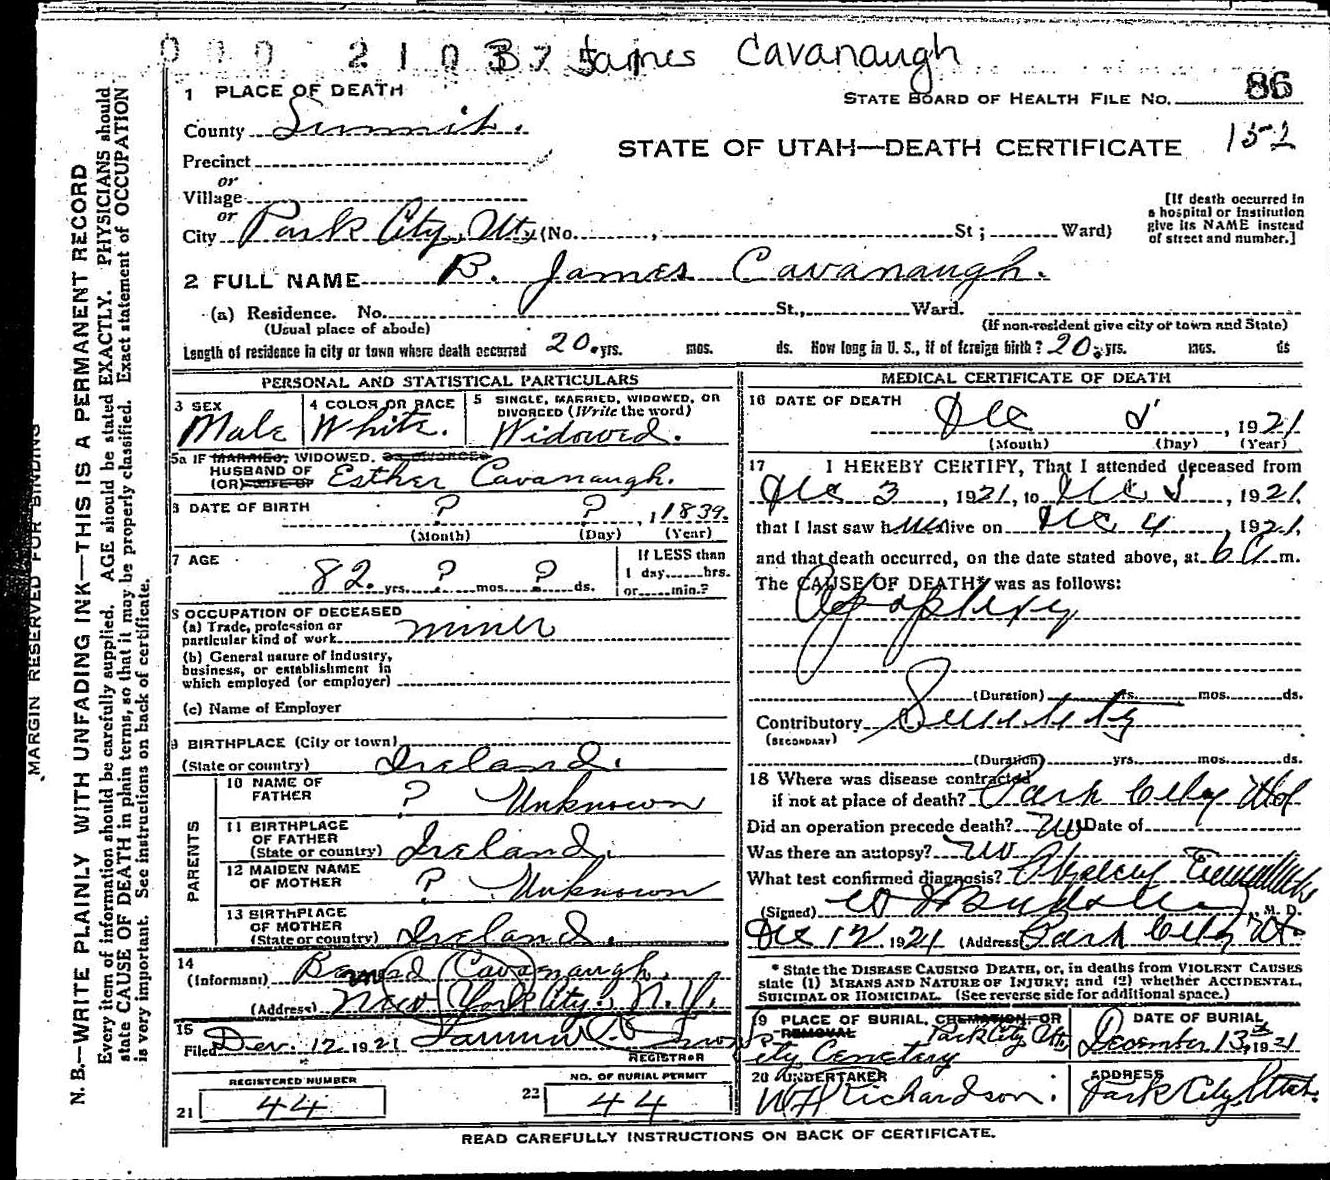 000 210375 James Cavanaugh
1 PLACE OF DEATH
STATE BOARD OF HEALTH FILE NO. 86
County Summit.
STATE OF UTAH—DEATH CERTIFICATE 152
Precinct
or
Village
or
City Park City, Ut. (No. , St ; Ward)
[If death occurred in
a hospital or institution
give its NAME instead
of street and number.]
2 FULL NAME B. James Cavanaugh.
(a) Residence. No. St., Ward.
(Usual place of abode)
(If non-resident give city or town and State)
Length of residence in city or town where death occurred 20. yrs. mos. ds. How long in U. S., if of foreign birth? 20. yrs. mos. ds
PERSONAL AND STATISTICAL PARTICULARS
3 SEX
Male
4 COLOR OR RACE
White.
5 SINGLE, MARRIED, WIDOWED, OR
DIVORCED (Write the word)
Widowed.
5a IF MARRIED, WIDOWED, OR DIVORCED
HUSBAND OF
(OR) WIFE OF Esther Cavanaugh.
6 DATE OF BIRTH
? ? , 1839.
(Month) (Day) (Year)
7 AGE
82. yrs. ? mos. ? ds.
If LESS than
1 day, hrs.
or min.?
8 OCCUPATION OF DECEASED
(a) Trade, profession or
particular kind of work miner
(b) General nature of industry,
business, or establishment in
which employed (or employer)
(c) Name of Employer
9 BIRTHPLACE (City or town)
(State or country) Ireland.
PARENTS
10 NAME OF
FATHER ? Unknown
11 BIRTHPLACE
OF FATHER
(State or country) Ireland.
12 MAIDEN NAME
OF MOTHER ? Unknown
13 BIRTHPLACE
OF MOTHER
(State or country) Ireland.
14
(Informant) Bernard Cavanaugh.
(Address) New York City, N. Y.
15
Filed Dec. 12 1921
REGISTRAR
REGISTERED NUMBER
21 44
NO. OF BURIAL PERMIT
22 44
MEDICAL CERTIFICATE OF DEATH
16 DATE OF DEATH
Dec 5 , 1921
(Month) (Day) (Year)
17 I HEREBY CERTIFY, That I attended deceased from
Dec 3 , 1921, to Dec 5 , 1921
that I last saw him alive on Dec 4 , 1921
and that death occurred, on the date stated above, at 6 A m.
The CAUSE OF DEATH* was as follows:
Apoplexy
(Duration) yrs. mos. ds.
Contributory Senility
(SECONDARY)
(Duration) yrs. mos. ds.
18 Where was disease contracted
if not at place of death? Park City Utah
Did an operation precede death? No Date of
Was there an autopsy? No
What test confirmed diagnosis? Physical
(Signed) M. D.
Dec 12, 1921 (Address) Park City Ut
* State the DISEASE CAUSING DEATH, or, in deaths from VIOLENT CAUSES
state (1) MEANS AND NATURE OF INJURY; and (2) whether ACCIDENTAL,
SUICIDAL OR HOMICIDAL. (See reverse side for additional space.)
19 PLACE OF BURIAL, CREMATION OR
REMOVAL Park City Ut.
City Cemetery
DATE OF BURIAL
December 13th, 1921
20 UNDERTAKER
W H Richardson.
ADDRESS
Park City, Utah.
READ CAREFULLY INSTRUCTIONS ON BACK OF CERTIFICATE.
MARGIN RESERVED FOR BINDING
N. B.—WRITE PLAINLY WITH UNFADING INK—THIS IS A PERMANENT RECORD
Every item of information should be carefully supplied. AGE should be stated EXACTLY. PHYSICIANS should
state CAUSE OF DEATH in plain terms, so that it may be properly classified. Exact statement of OCCUPATION
is very important. See instructions on back of certificate.